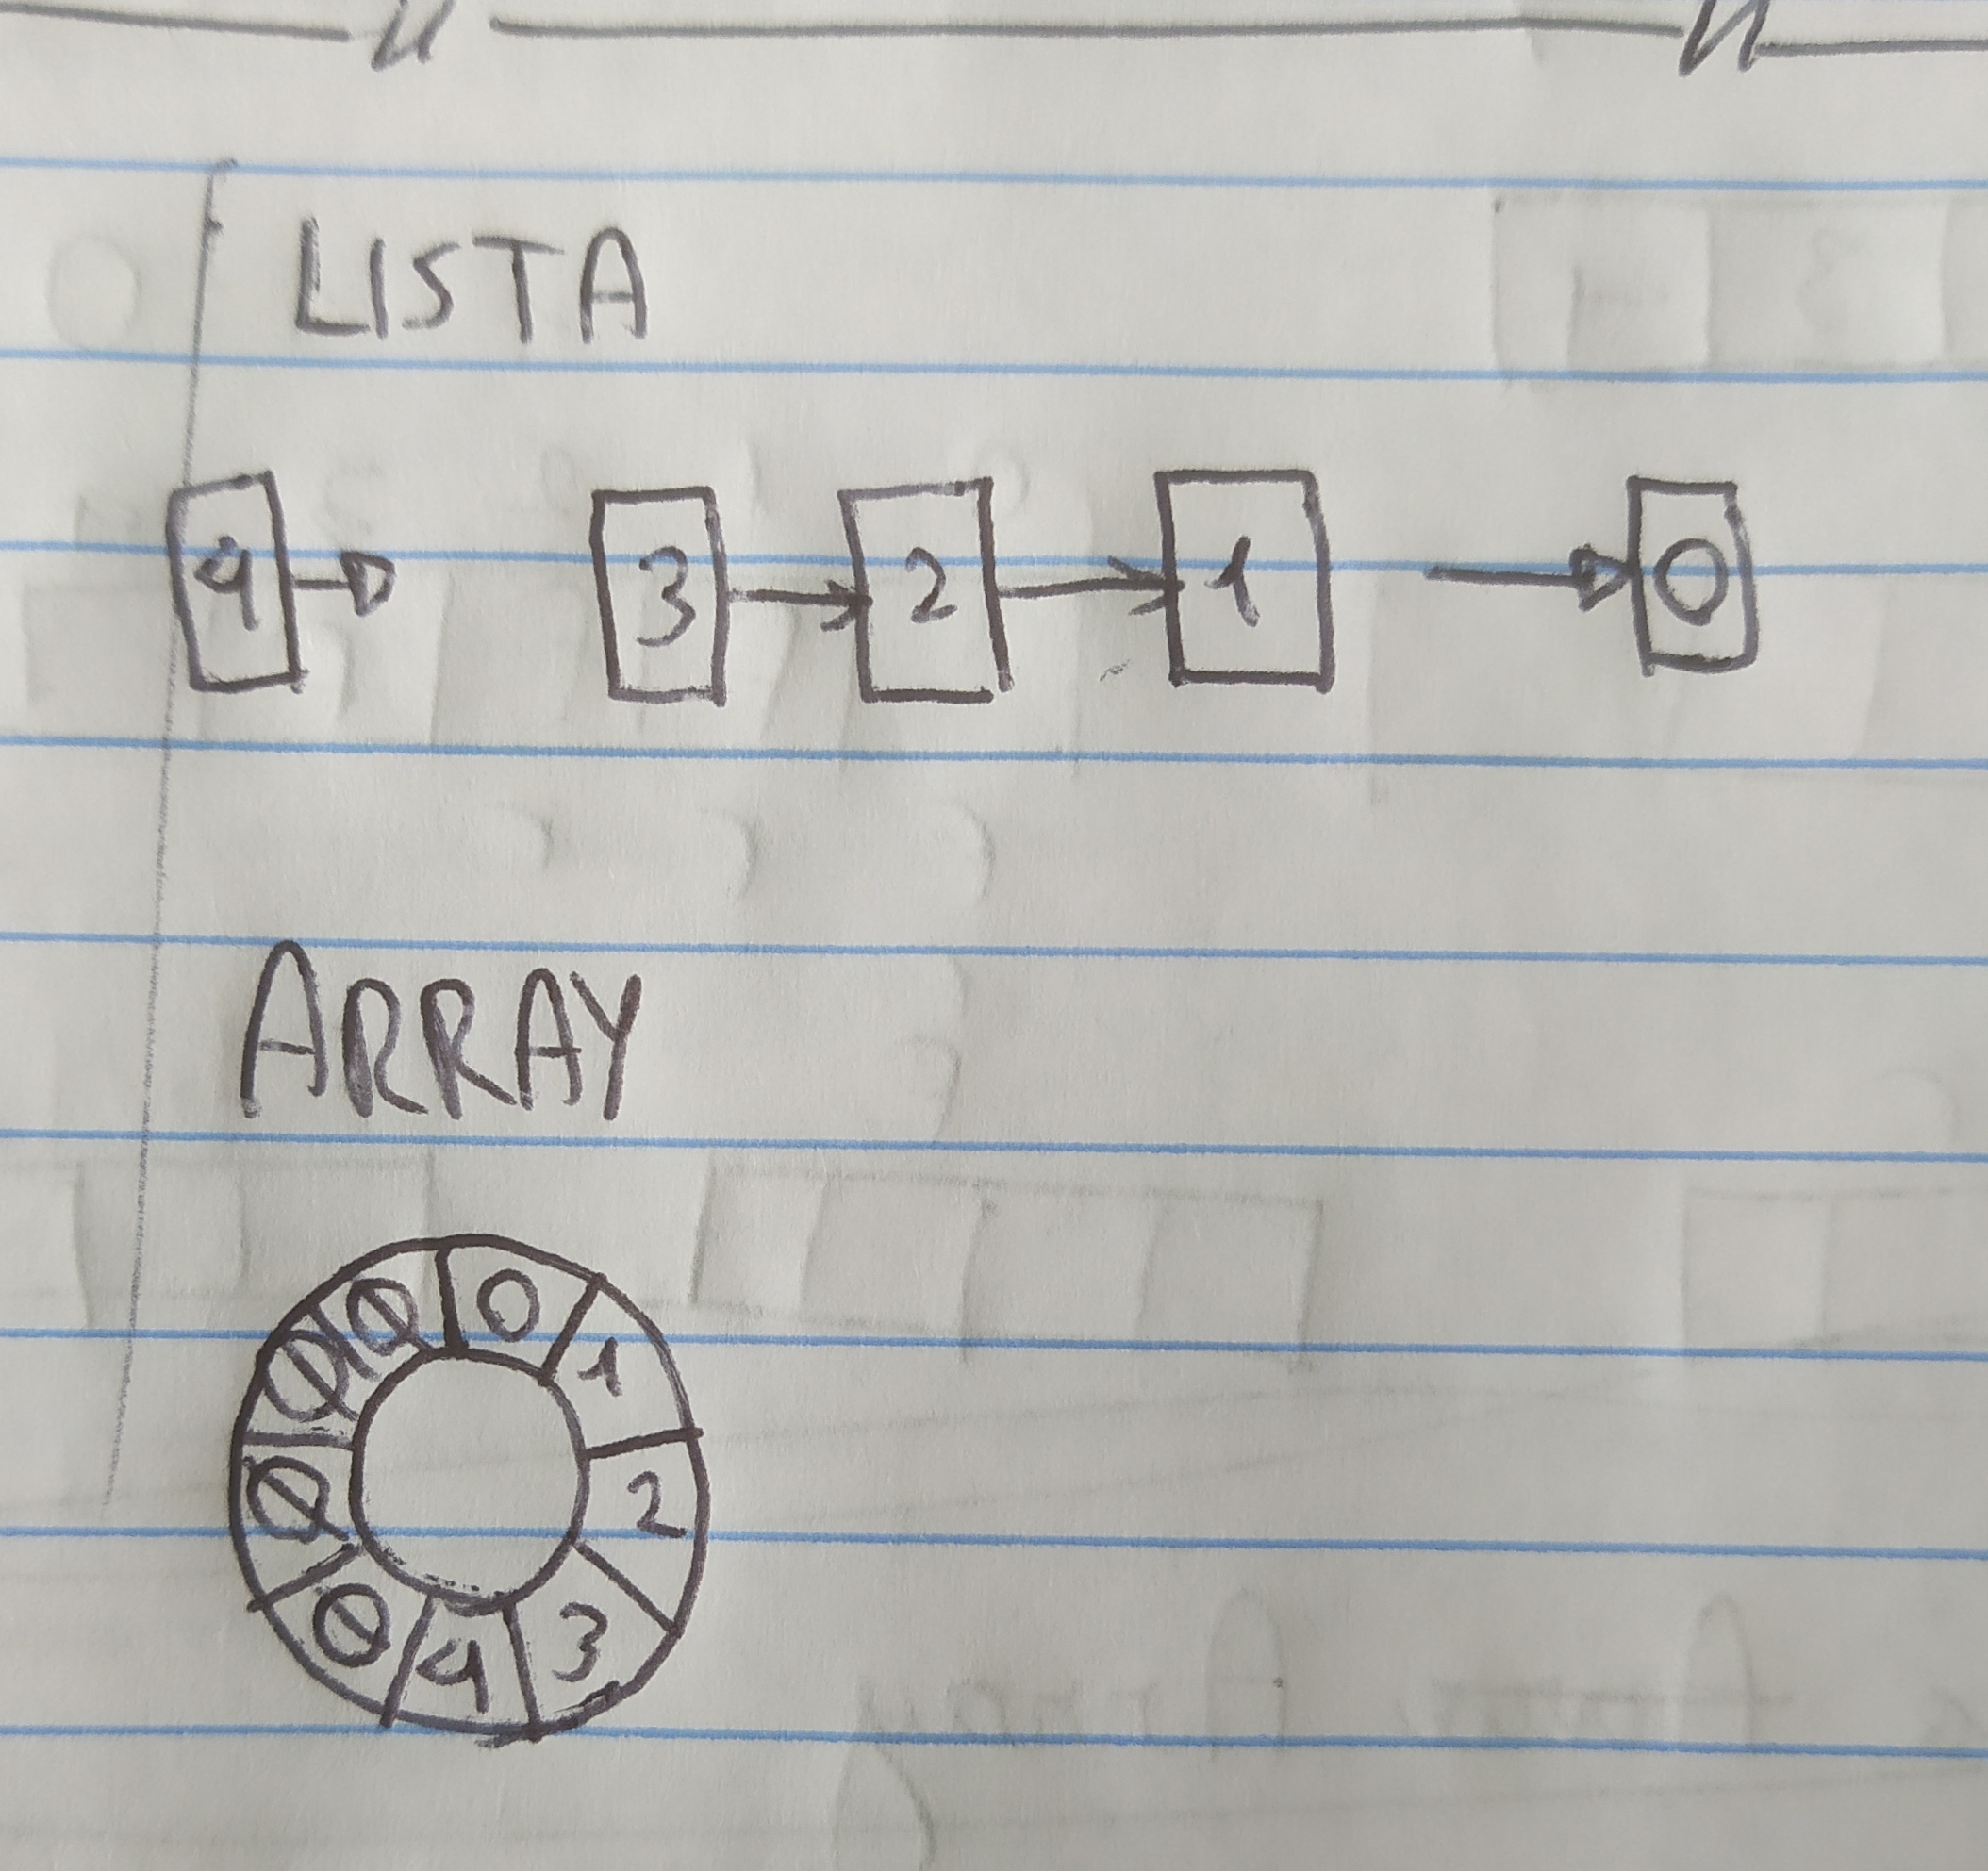 LISTA
4 3 2 1 0
ARRAY
0 1 2 3 4 Ø Ø Ø Ø